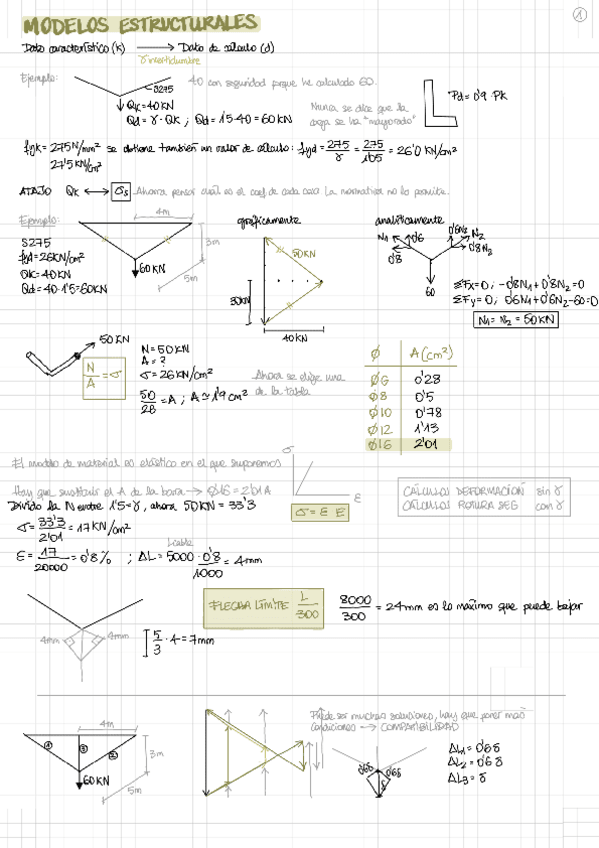 1
MODELOS ESTRUCTURALES
Dato característico (k) → Dato de cálculo (d)
γ incertidumbre
Ejemplo:
S275
QK = 40 KN
Qd = γ · QK ; Qd = 1'5·40 = 60 KN
40 con seguridad porque he calculado 60.
Nunca se dice que la
carga se ha "mayorado"
Pd = 0'9 · PK
fyk = 275 N/mm² se obtiene también un valor de cálculo: fyd = 275/γ = 275/1'05 = 26'0 KN/cm²
27'5 KN/cm²
ATAJO QK ↔ σs Ahorra pensar cuál es el coef de cada cosa. La normativa no lo permite.
Ejemplo:
S275
fyd = 26 KN/cm²
QK = 40 KN
Qd = 40·1'5 = 60 KN
4m
3m
5m
60 KN
gráficamente
50 KN
30 KN
40 KN
analíticamente
N1
0'6
0'8
0'6N2
N2
0'8N2
60
ΣFx = 0; -0'8N1 + 0'8N2 = 0
ΣFy = 0; 0'6N1 + 0'6N2 - 60 = 0
N1 = N2 = 50 KN
50 KN
N/A = σ
N = 50 KN
A = ?
σ = 26 KN/cm²
50/26 = A ; A ≃ 1'9 cm²
Ahora se elige una
de la tabla
Ø A (cm²)
Ø6 0'28
Ø8 0'5
Ø10 0'78
Ø12 1'13
Ø16 2'01
El modelo de material es elástico en el que suponemos
Hay que sustituir el A de la barra → Ø16 = 2'01 A
Divido la N entre 1'5 = γ, ahora 50 KN = 33'3
σ = 33'3/2'01 = 17 KN/cm²
ε = 17/20000 = 0'8 ‰ ; ΔL = 5000 · 0'8/1000 = 4mm
L cable
σ
ε
σ = ε E
CÁLCULOS DEFORMACIÓN sin γ
CÁLCULOS ROTURA SEG con γ
4mm
4mm
5/3 · 4 = 7mm
FLECHA LÍMITE L/300
8000/300 = 24mm es lo máximo que puede bajar
4m
3m
5m
1
3
2
60 KN
Puede ser muchas soluciones, hay que poner más
condiciones → COMPATIBILIDAD
0'6δ
0'6δ
δ
ΔL1 = 0'6δ
ΔL2 = 0'6δ
ΔL3 = δ